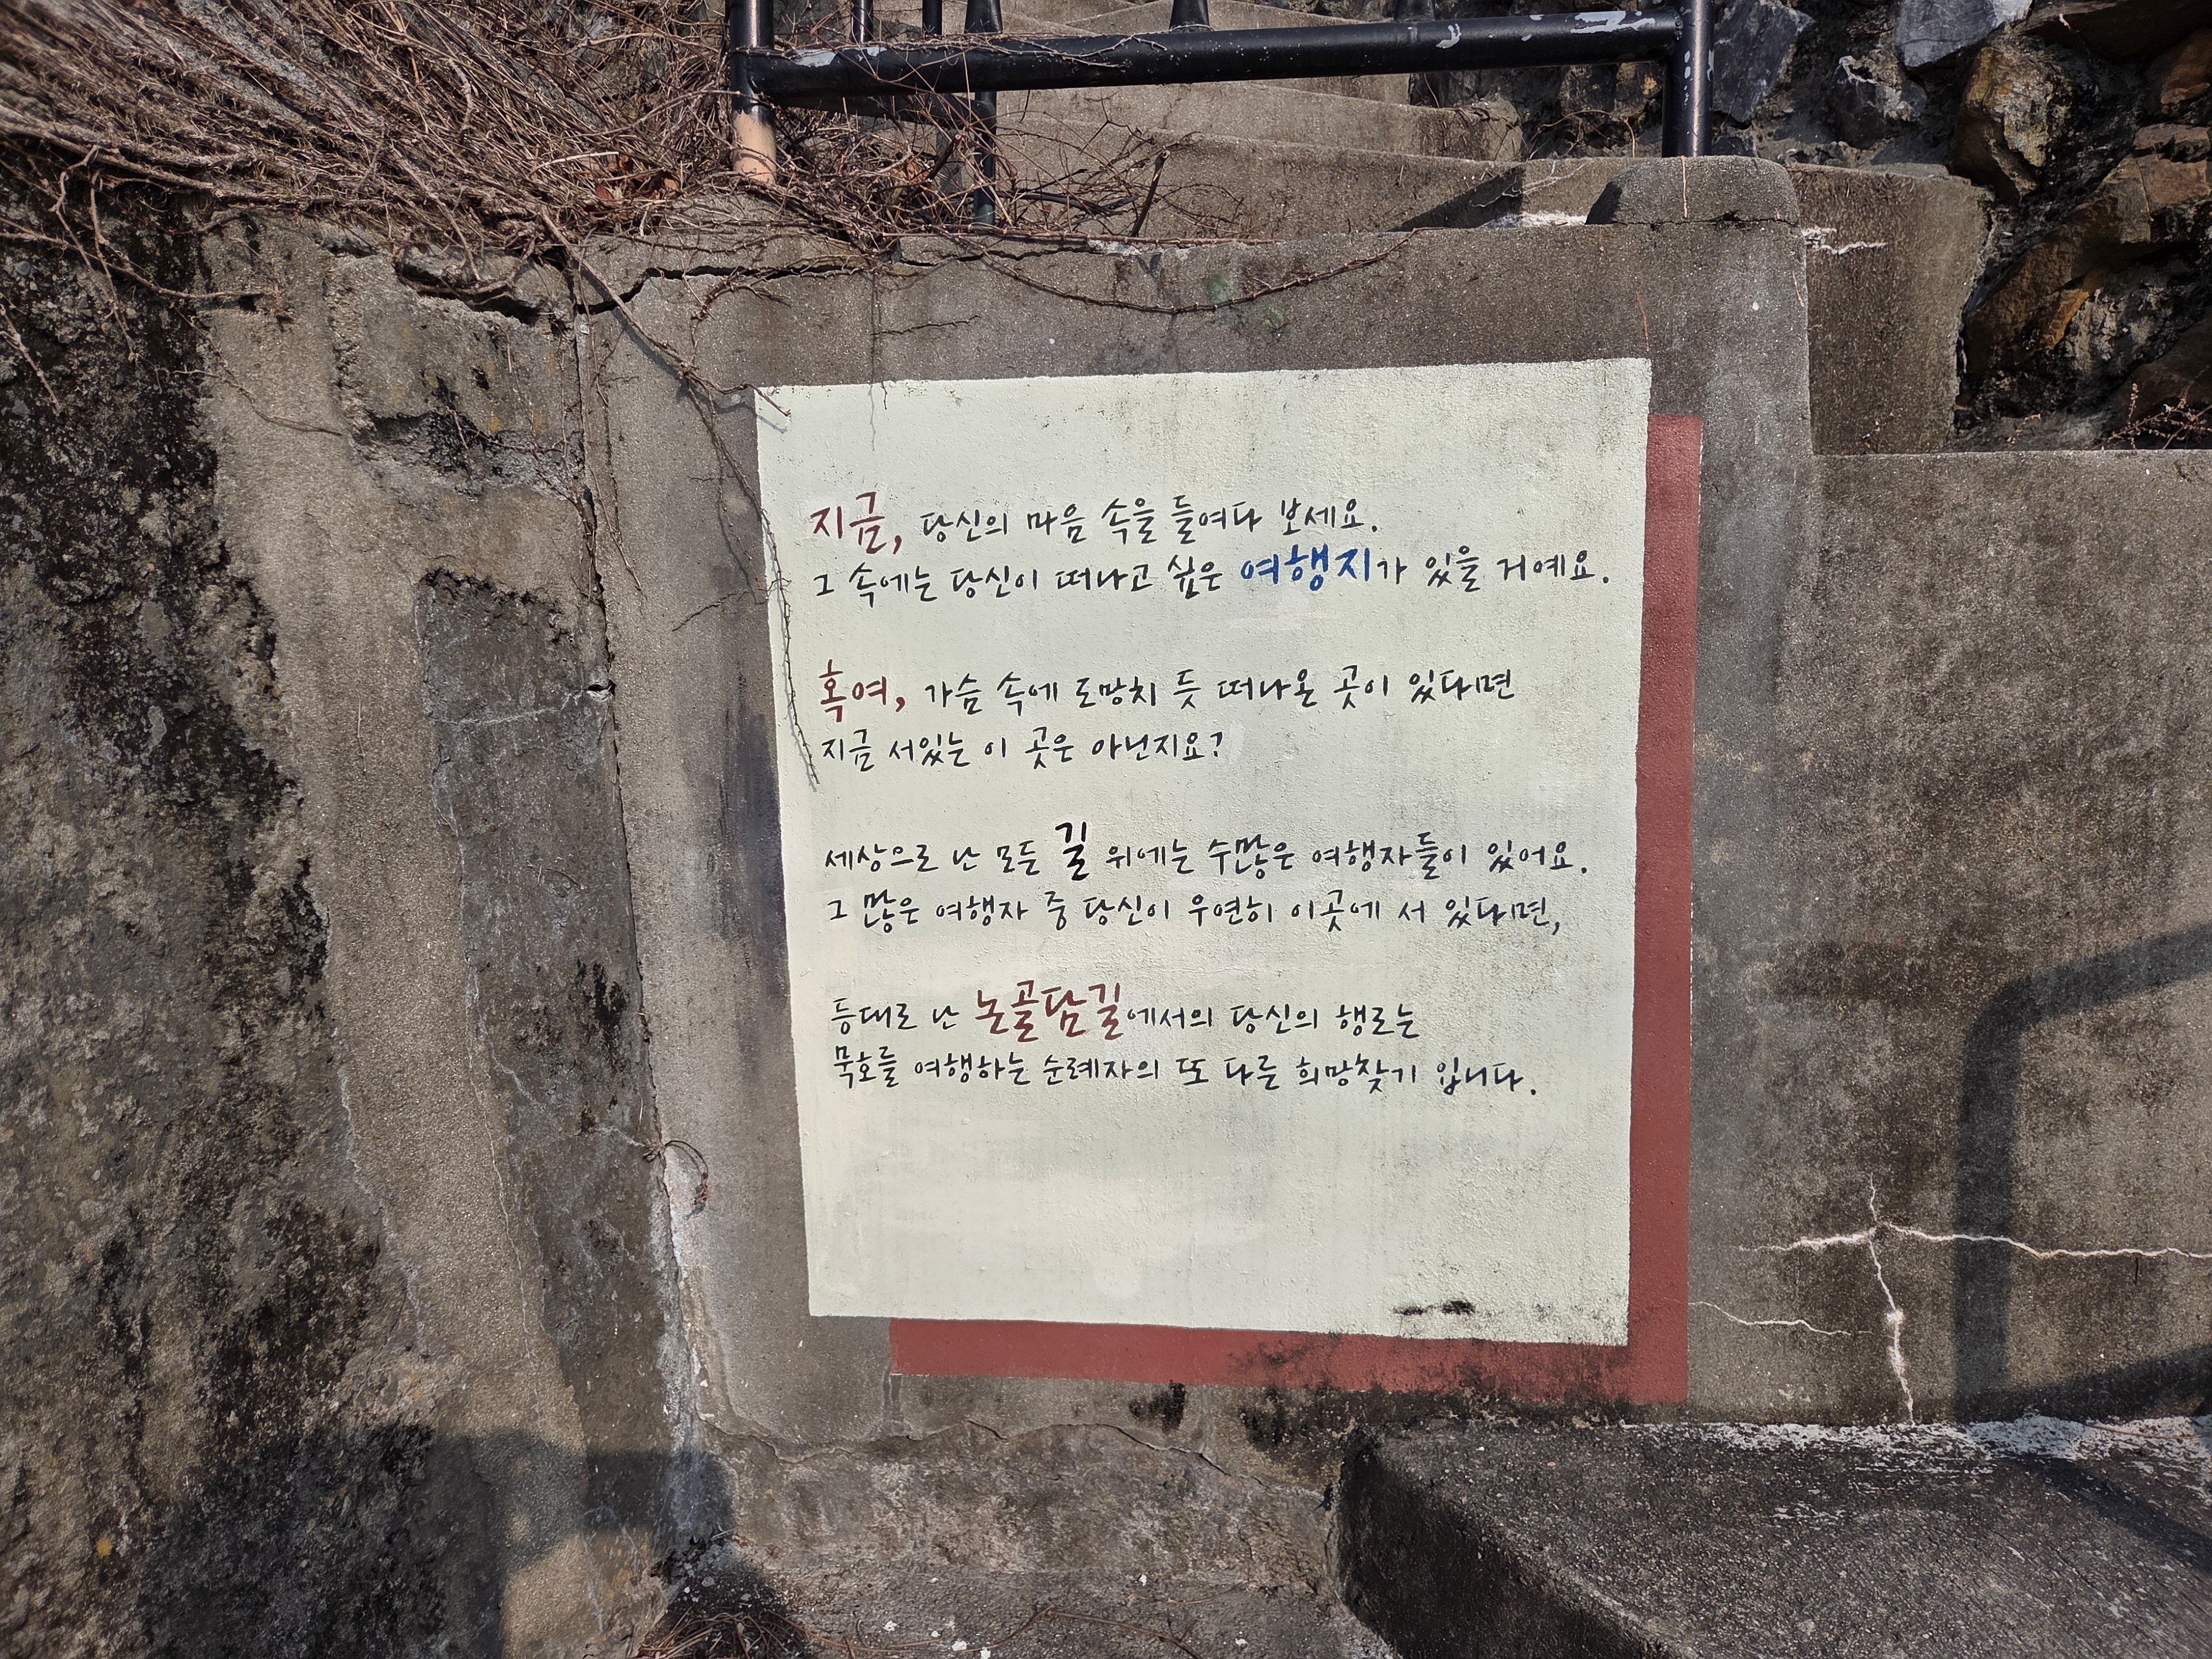 지금, 당신의 마음 속을 들여다 보세요.
그 속에는 당신이 떠나고 싶은 여행지가 있을 거예요.
혹여, 가슴 속에 도망치 듯 떠나온 곳이 있다면
지금 서있는 이 곳은 아닌지요?
세상으로 난 모든 길 위에는 수많은 여행자들이 있어요.
그 많은 여행자 중 당신이 우연히 이곳에 서 있다면,
등대로 난 논골담길에서의 당신의 행로는
묵호를 여행하는 순례자의 또 다른 희망찾기 입니다.